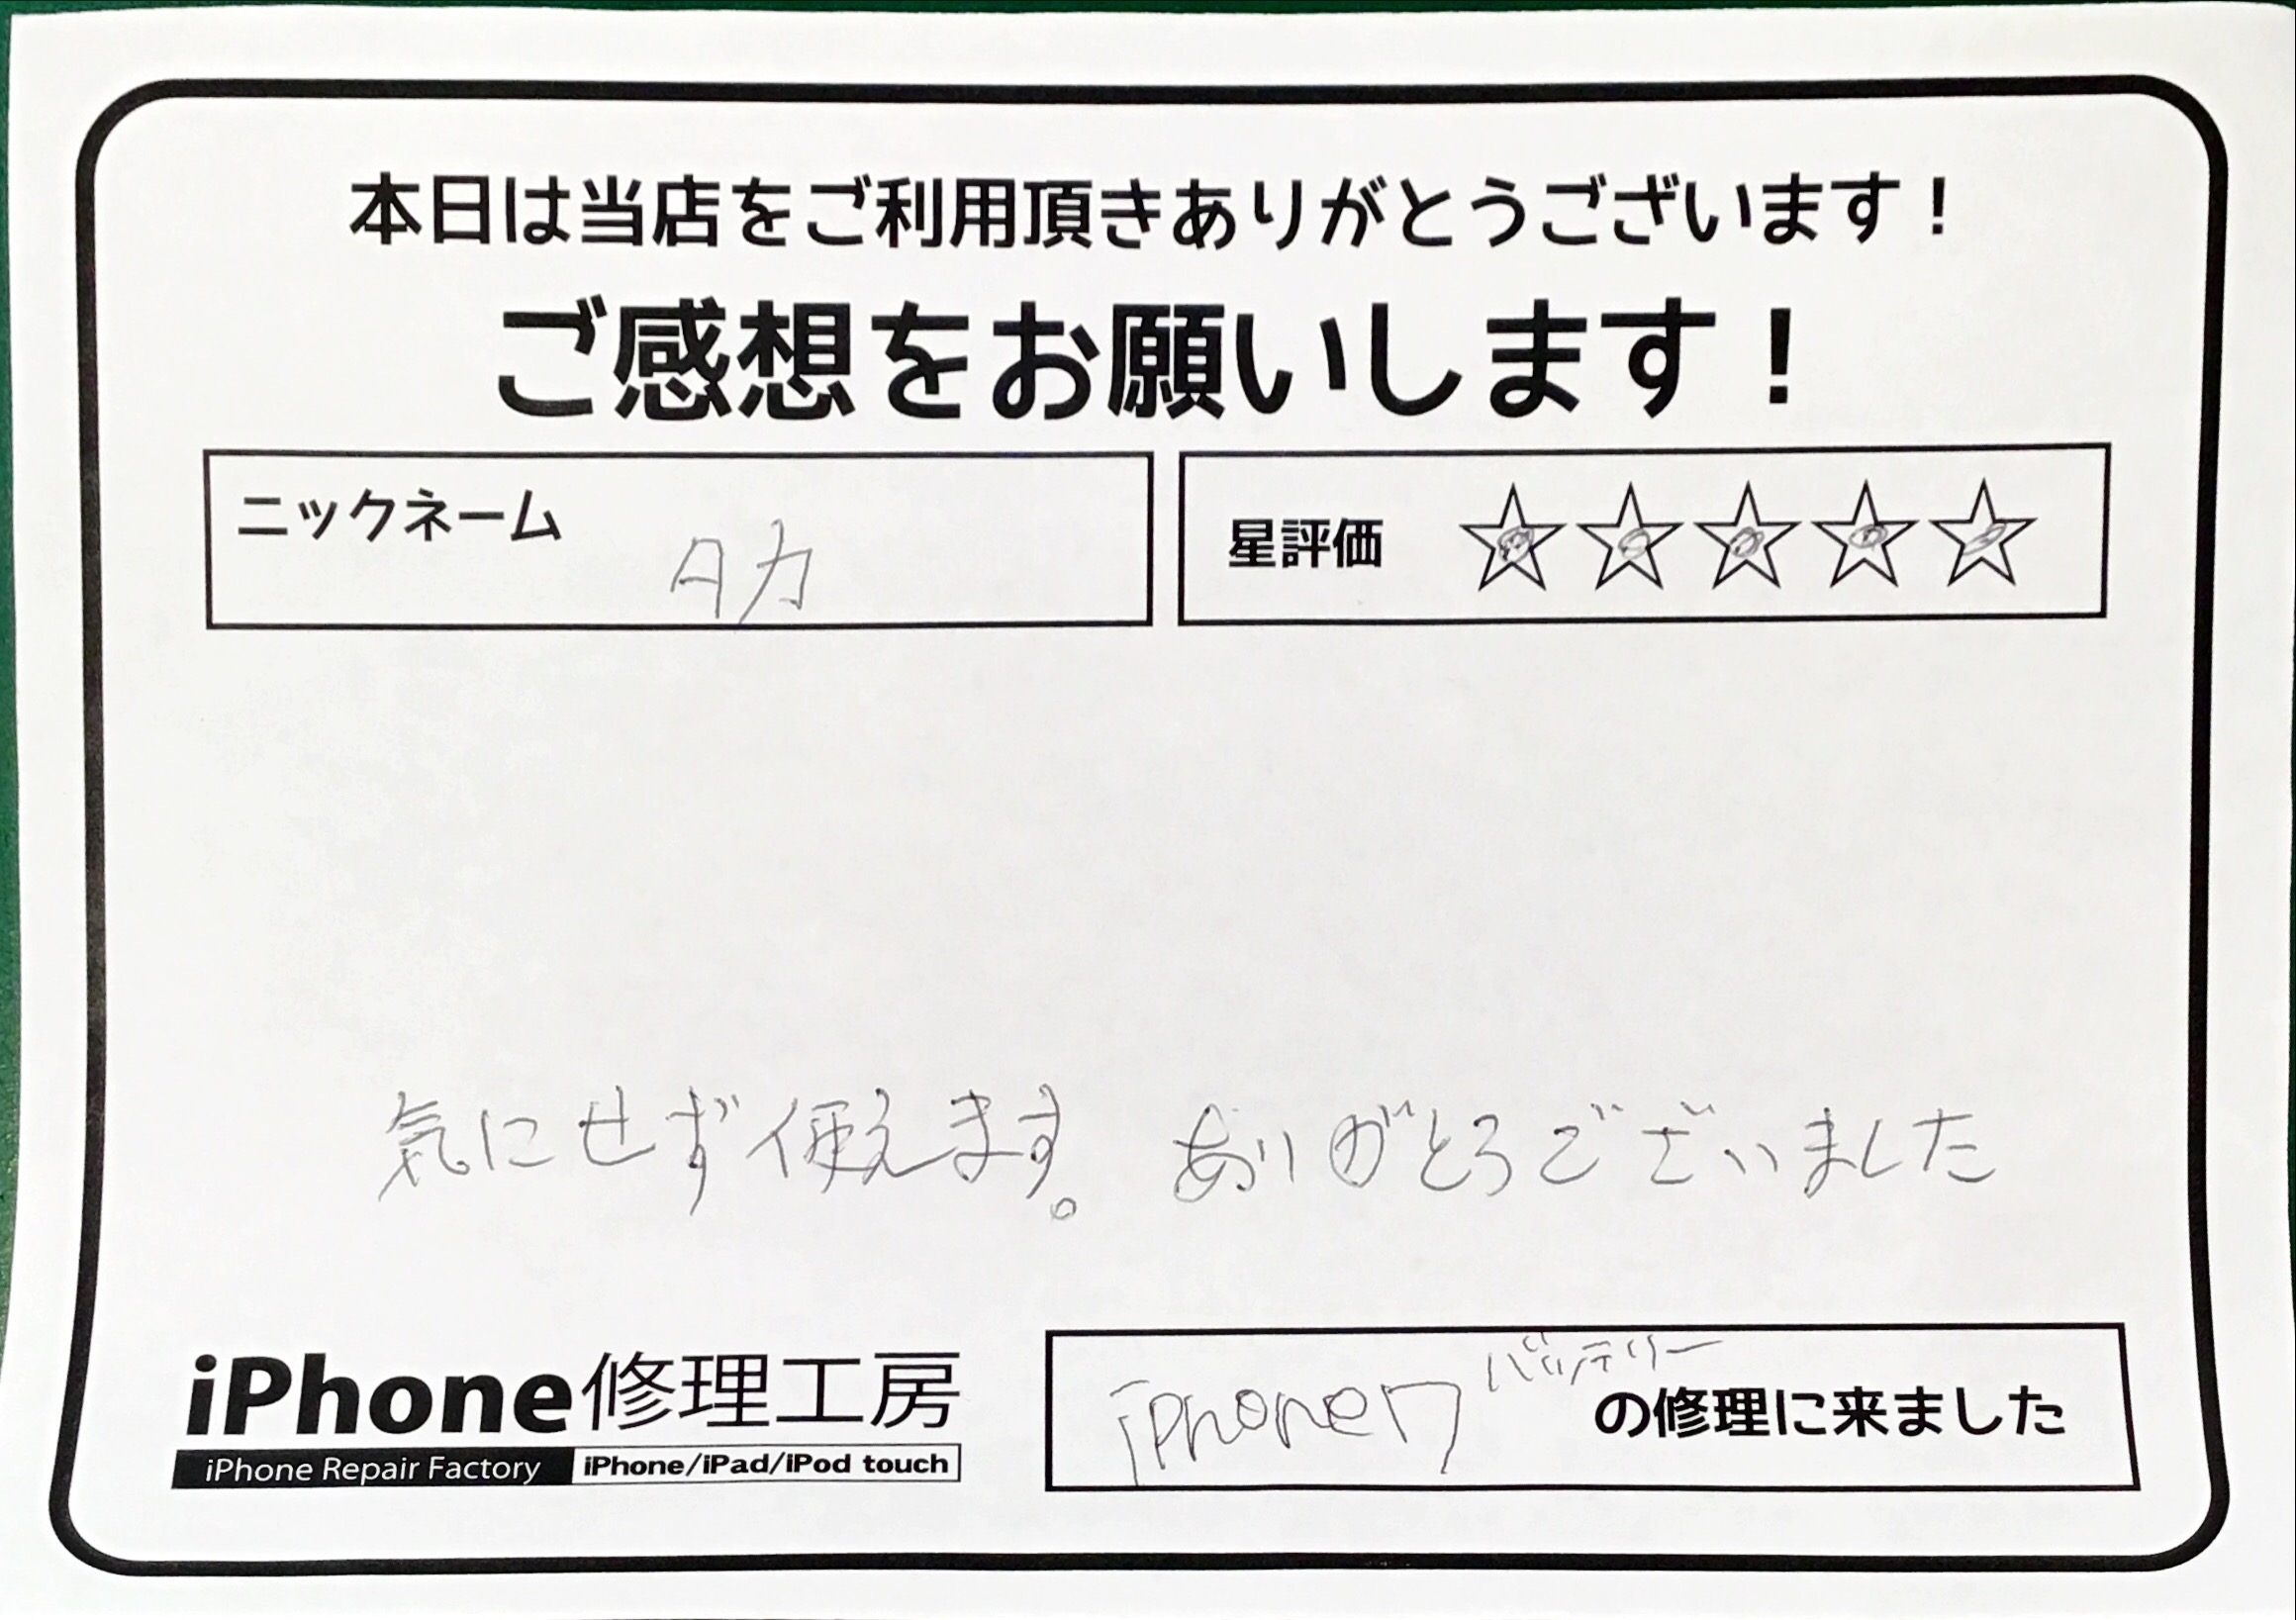 本日は当店をご利用頂きありがとうございます！
ご感想をお願いします！
ニックネーム タカ
星評価 ☆☆☆☆☆
気にせず使えます。 ありがとうございました
iPhone修理工房
iPhone Repair Factory iPhone/iPad/iPod touch
iPhone7 バッテリー の修理に来ました